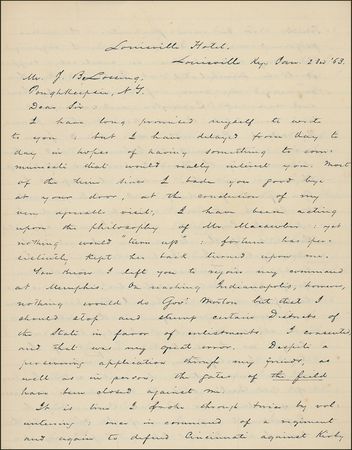 Louisville Hotel.
Louisville Ky. Jan. 23d '63.
Mr. J. B. Lossing,
Poughkeepsie, N.Y.
Dear Sir.
I have long promised myself to write
to you; but I have delayed from day to
day in hopes of having something to com-
municate that would really interest you. Most
of the time since I bade you good bye
at your door, at the conclusion of my
very agreeable visit, I have been acting
upon the philosophy of Mr. Macawber: yet
nothing would "turn up": fortune has per-
sistently kept her back turned upon me.
You know I left you to rejoin my command
at Memphis. On reaching Indianapolis, however,
nothing would do Gov. Morton but that I
should stop and stump certain Districts of
the State in favor of enlistments. I consented,
and that was my great error. Despite a
persevering application through my friends, as
well as in person, the gates of the field
have been closed against me.
It is true I broke through twice by vol-
unteering: once in command of a regiment
and again to defend Cincinnati against Kirby